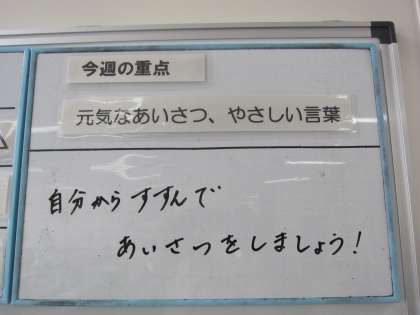 今週の重点
元気なあいさつ、やさしい言葉
自分からすすんで
あいさつをしましょう！